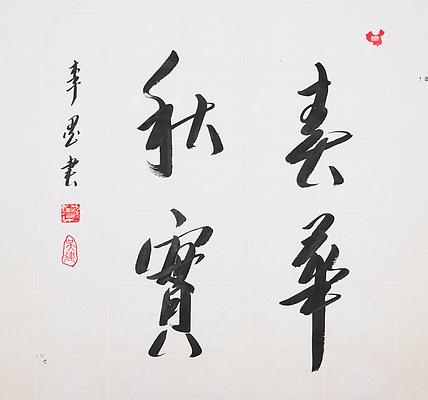 春華
秋實
墨書